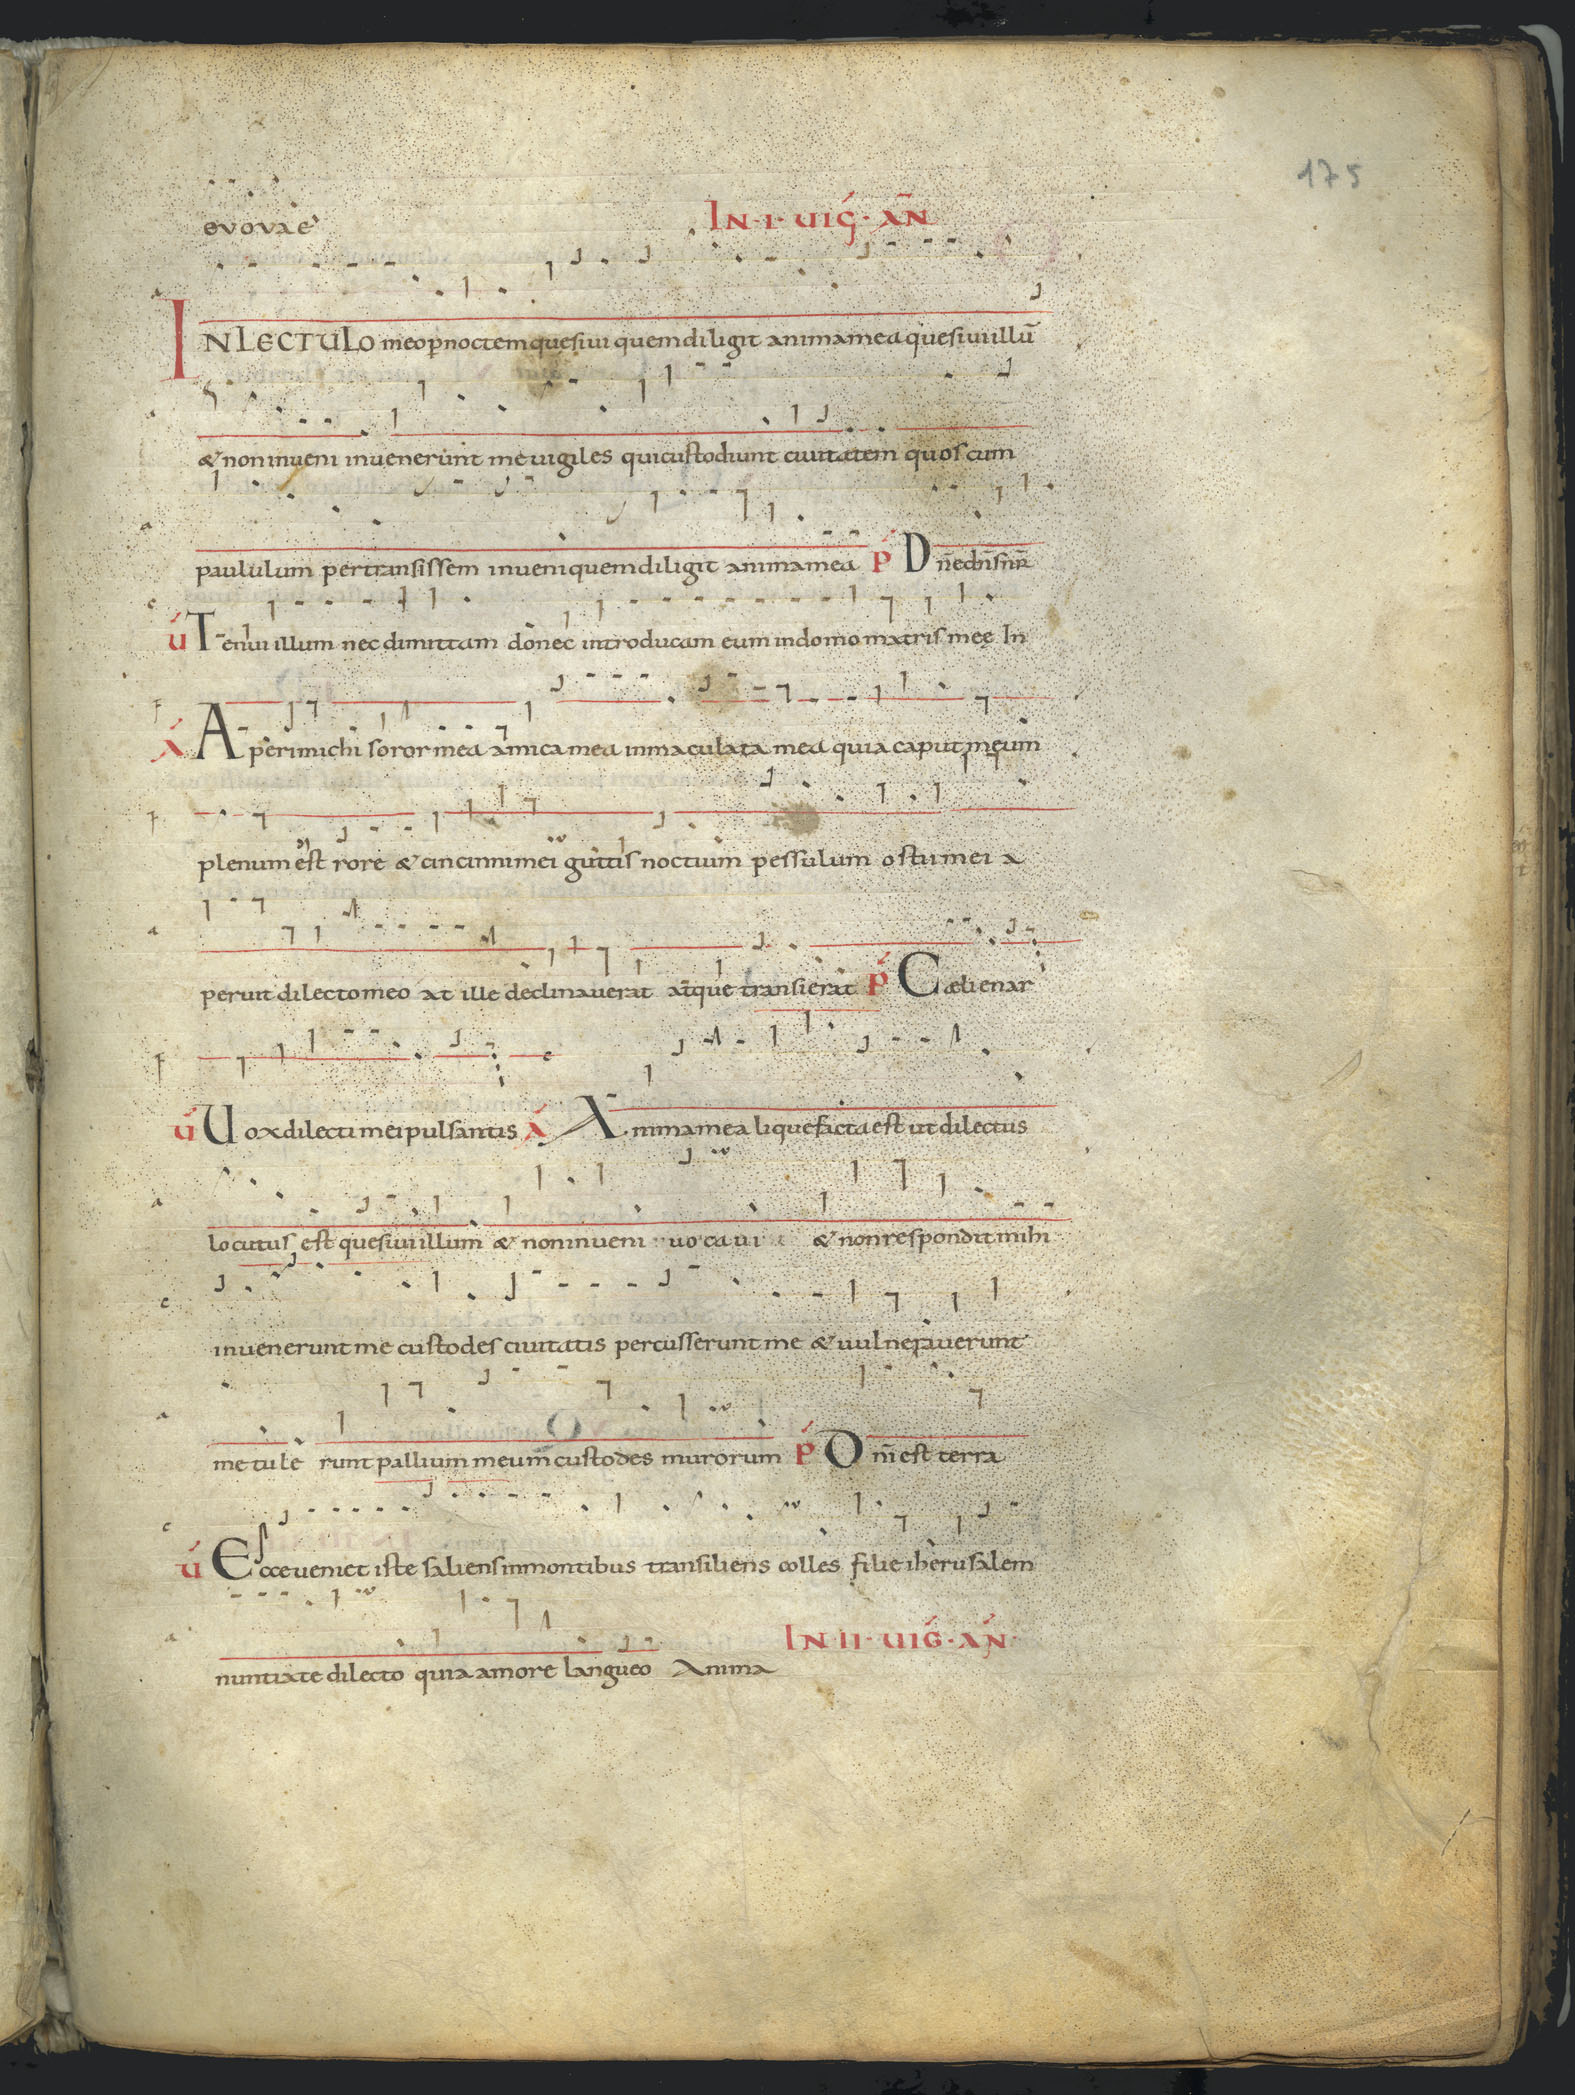 175
evovaé
IN·I·UIG̃·AÑ
INLECTULO meo p̱noctem quesiui quem diligit anima mea quesiui illũ
& non inueni inuenerunt me uigiles qui custodiunt ciuitatem quos cum
paululum pertransissem inueni quem diligit anima mea P̃ Dñe dñs nr̃
ũ Tenui illum nec dimittam donec introducam eum in domo matris meę In
Ã Aperi michi soror mea amica mea inmaculata mea quia caput meum
plenum est rore & cincinni mei guttis noctium pessulum ostii mei a
perui dilecto meo at ille declinauerat atque transierat P̃ Cæli enar
ũ Uox dilecti mei pulsantis Ã Anima mea liquefacta est ut dilectus
locutus est quesiui illum & non inueni uocaui & non respondit mihi
inuenerunt me custodes ciuitatis percusserunt me & uulnerauerunt
me tulerunt pallium meum custodes murorum P̃ Dñi est terra
ũ Ecce ueniet iste saliens in montibus transiliens colles filie iherusalem
nuntiate dilecto quia amore langueo Anima
IN II·UIG̃·AÑ·